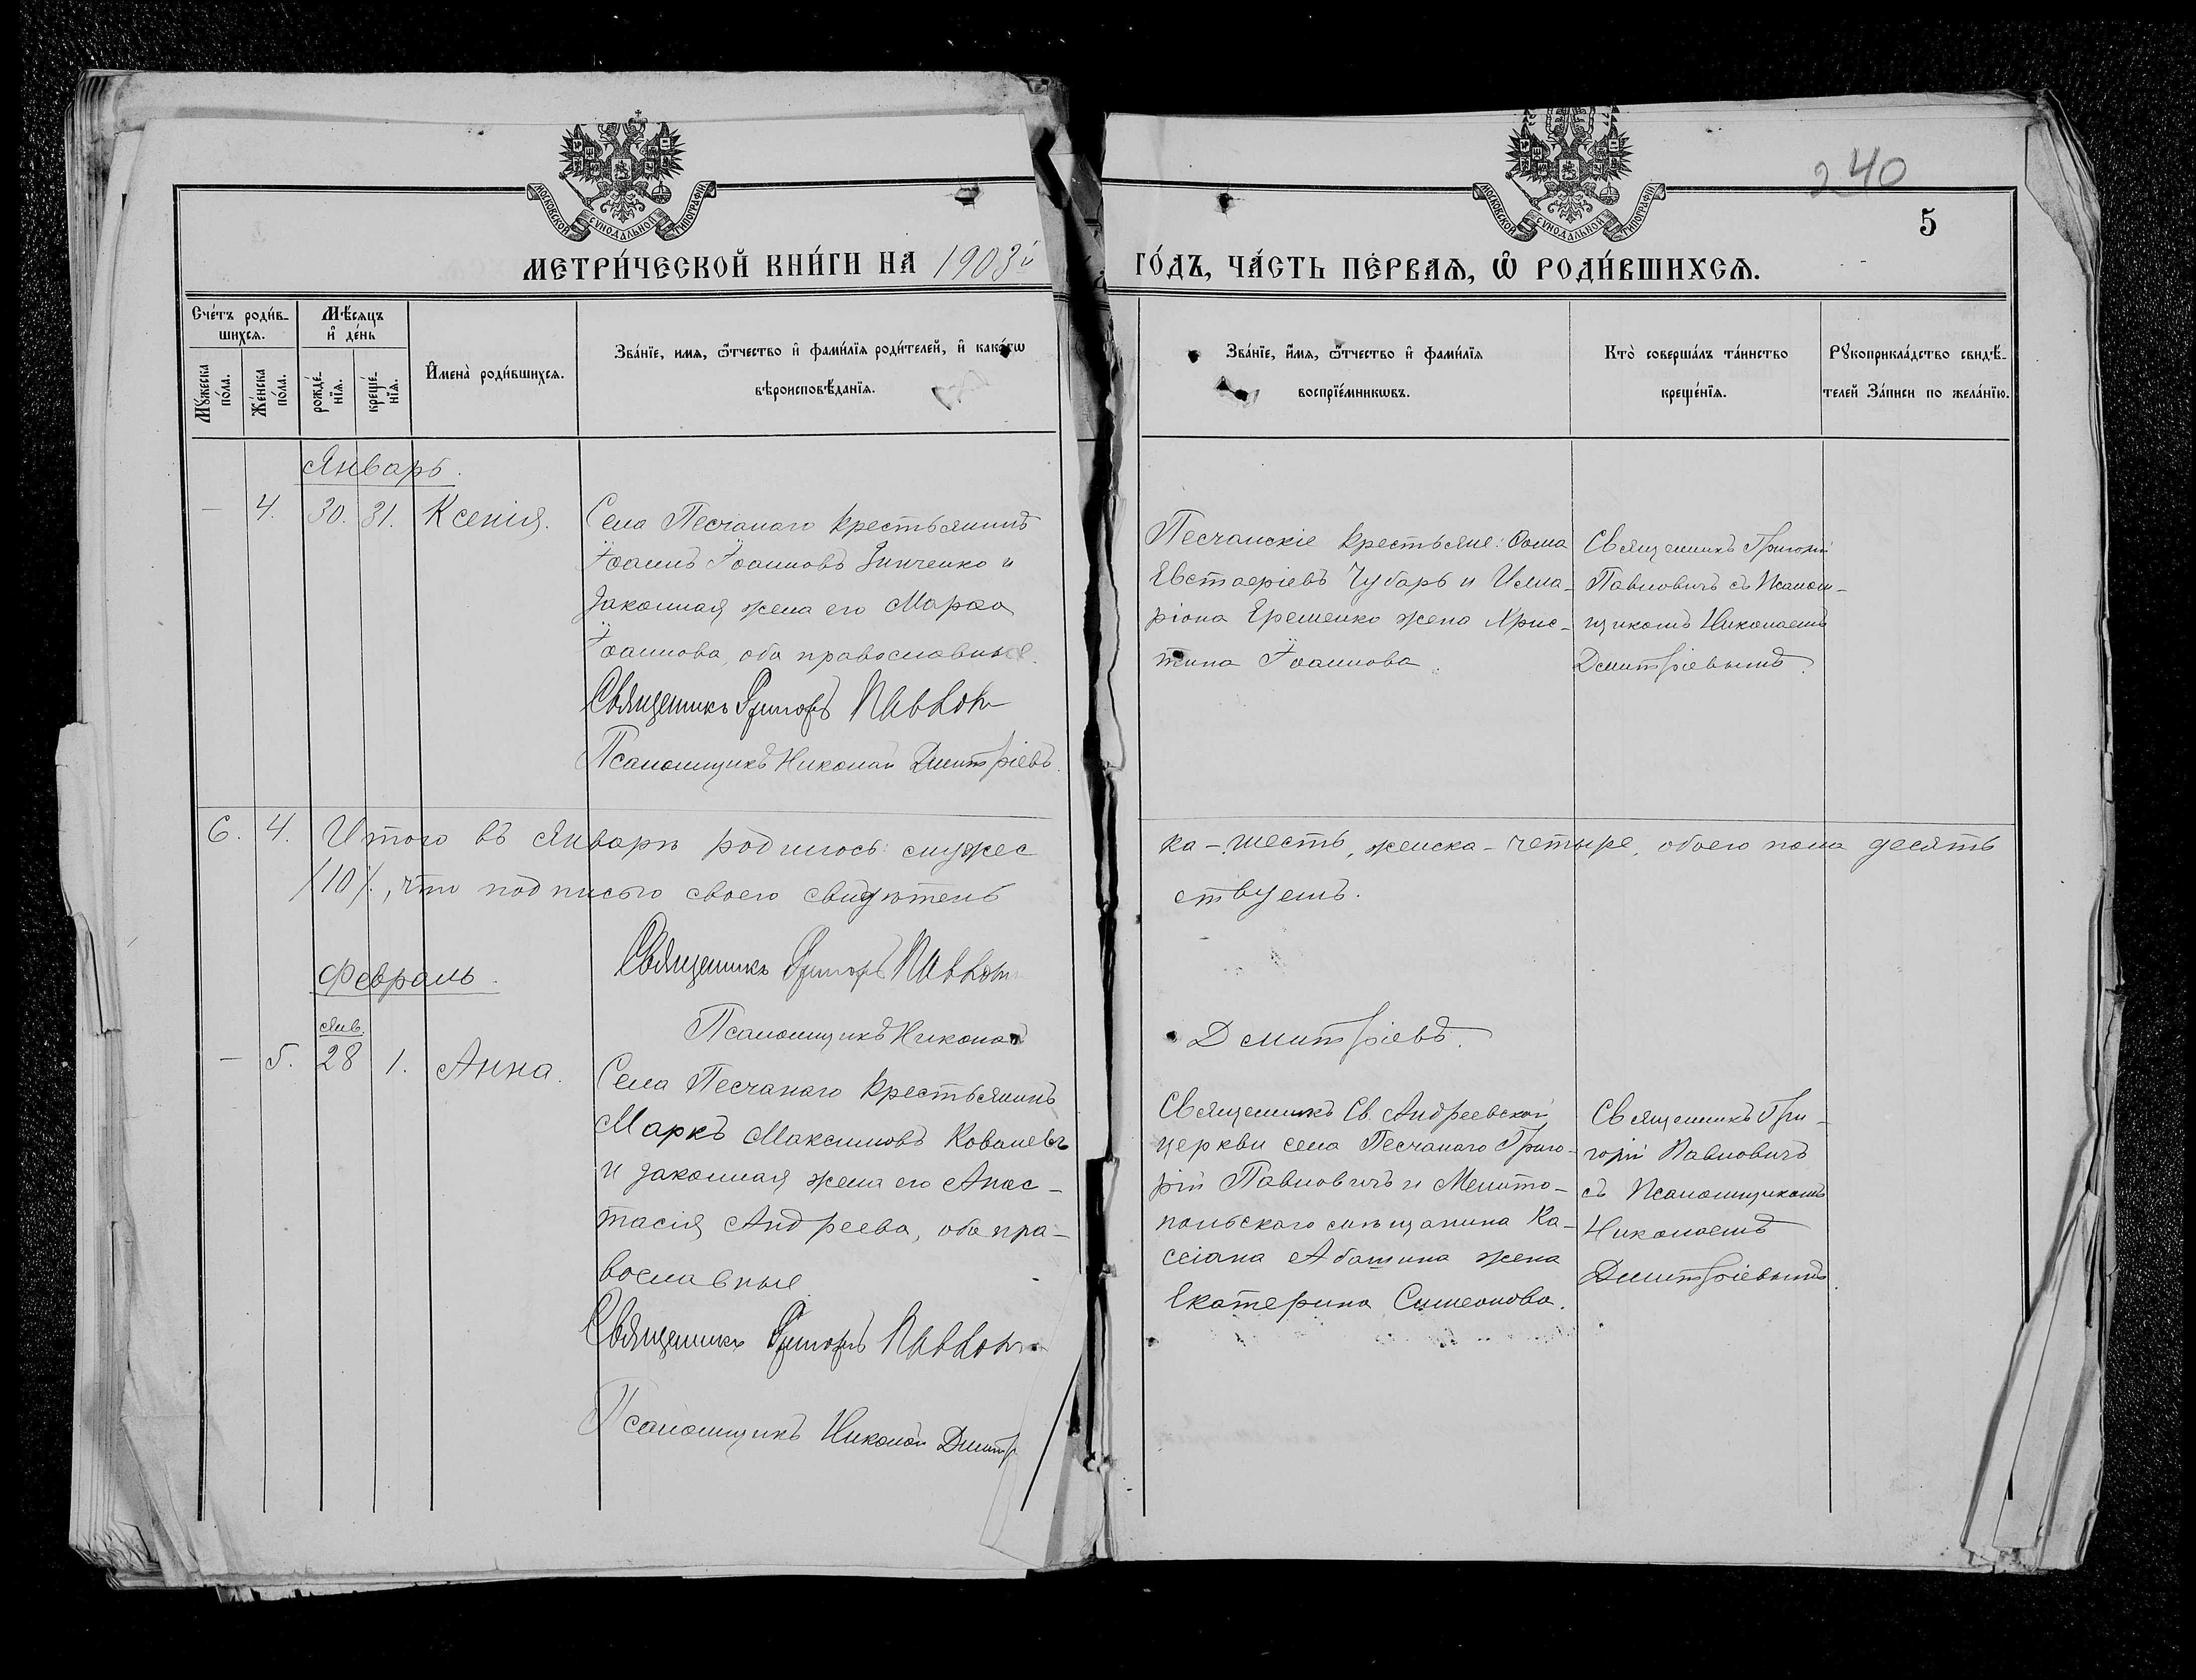 МОСКОВСКОЙ СѴНОДАЛЬНОЙ ТИПОГРАФІИ
МОСКОВСКОЙ СѴНОДАЛЬНОЙ ТИПОГРАФІИ
240
5
МЕТРИ́ЧЕСКОЙ КНИ́ГИ НА 1903й
ГО́ДЪ, ЧА́СТЬ ПЕ́РВАѦ, Ѡ҆ РОДИ́ВШИХСѦ.
Сче́тъ роди́в-
шихсѧ.
Мꙋ́жеска по́ла.
Же́нска по́ла.
Мѣ́сѧцъ
и҆ де́нь
рожде́-
нїѧ.
креще́-
нїѧ.
И҆мена̀ роди́вшихсѧ.
Зва́нїе, и҆мѧ, ѻ҆́тчество и҆ фами́лїѧ роди́телей, и҆ како́гѡ
вѣроисповѣ́данїѧ.
Зва́нїе, и҆́мѧ, ѻ҆́тчество и҆ фами́лїѧ
воспрїе́мникѡвъ.
Кто̀ соверша́лъ та́инство
креще́нїѧ.
Рꙋкоприкла́дство свидѣ́-
телей за́писи по жела́нїю.
Январь.
— 4. 30. 31. Ксенія.
Села Песчанаго крестьянинъ
Іоаннъ Іоанновъ Зинченко и
законная жена его Марѳа
Іоаннова, оба православные.
Священникъ Григорій Павлович
Псаломщикъ Николай Дмитріевъ.
Песчанскіе крестьяне: Ѳома
Евстафіевъ Чубарь и Илла-
ріона Еременко жена Хрис-
тина Іоаннова.
Священникъ Григорій
Павловичъ съ Псалом-
щикомъ Николаемъ
Дмитріевымъ.
6. 4. Итого въ Январѣ родилось: мужес
ка – шесть, женска – четыре, обоего пола десять
/10/, что подписью своею свидѣтель
ствуемъ.
Священникъ Григорій Павлович
Псаломщикъ Николай
Дмитріевъ.
Февраль.
Янв.
— 5. 28 1. Анна.
Села Песчанаго крестьянинъ
Маркъ Максимовъ Ковалевъ
и законная жена его Анас-
тасія Андреева, оба пра-
вославные
Священникъ Григорій Павлович
Псаломщикъ Николай Дмитр
Священникъ Св. Андреевской
церкви села Песчанаго Григо-
рій Павловичъ и Мелито-
польскаго мѣщанина Ка-
ссіана Абатина жена
Екатерина Симеонова.
Священникъ Гри-
горій Павловичъ
съ Псаломщикомъ
Николаемъ
Дмитріевымъ.